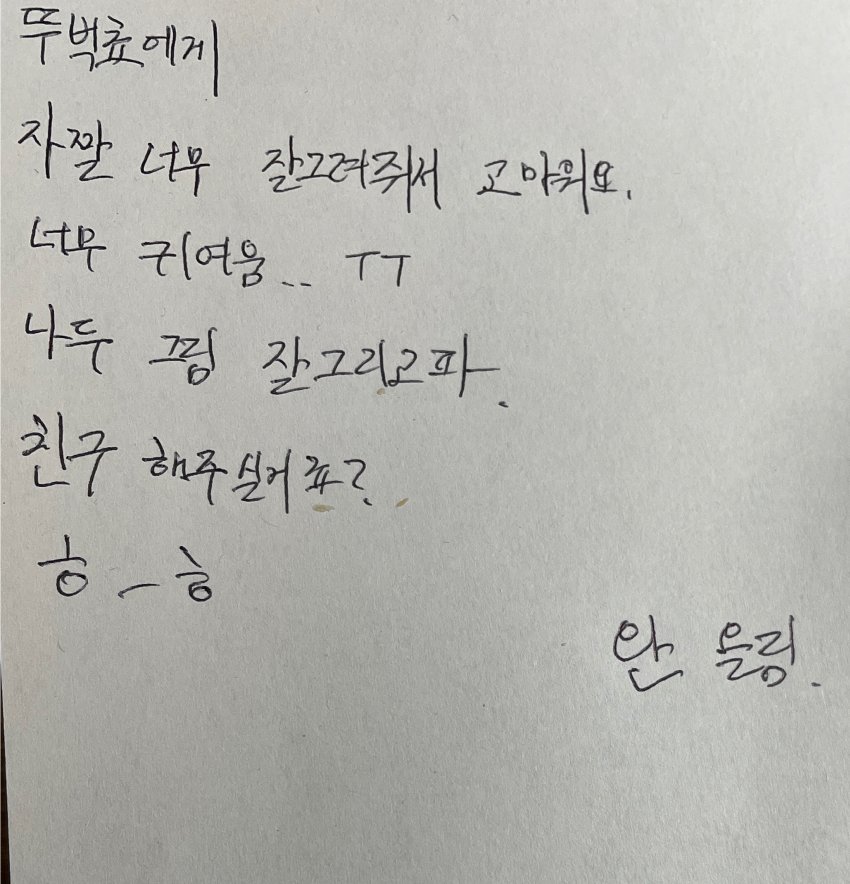 뚜벅쵸에게
자짤 너무 잘그려줘서 고마워요.
너무 귀여움.. ㅜㅜ
나두 끄림 잘그리고파.
친구 해주실거죠?
ㅎ_ㅎ